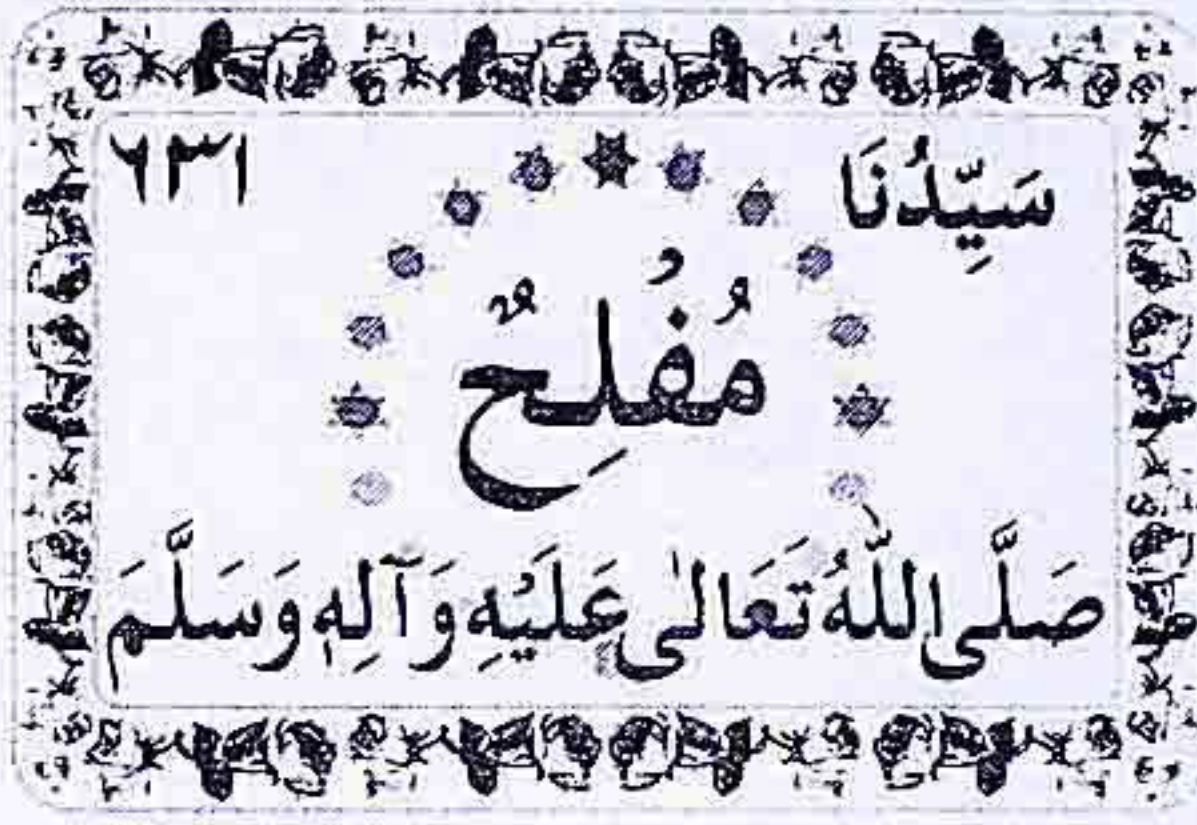 سَيِّدُنَا ۶۳۱
مُفْلِحٌ
صَلَّى اللّٰهُ تَعَالٰى عَلَيْهِ وَآلِهٖ وَسَلَّمَ